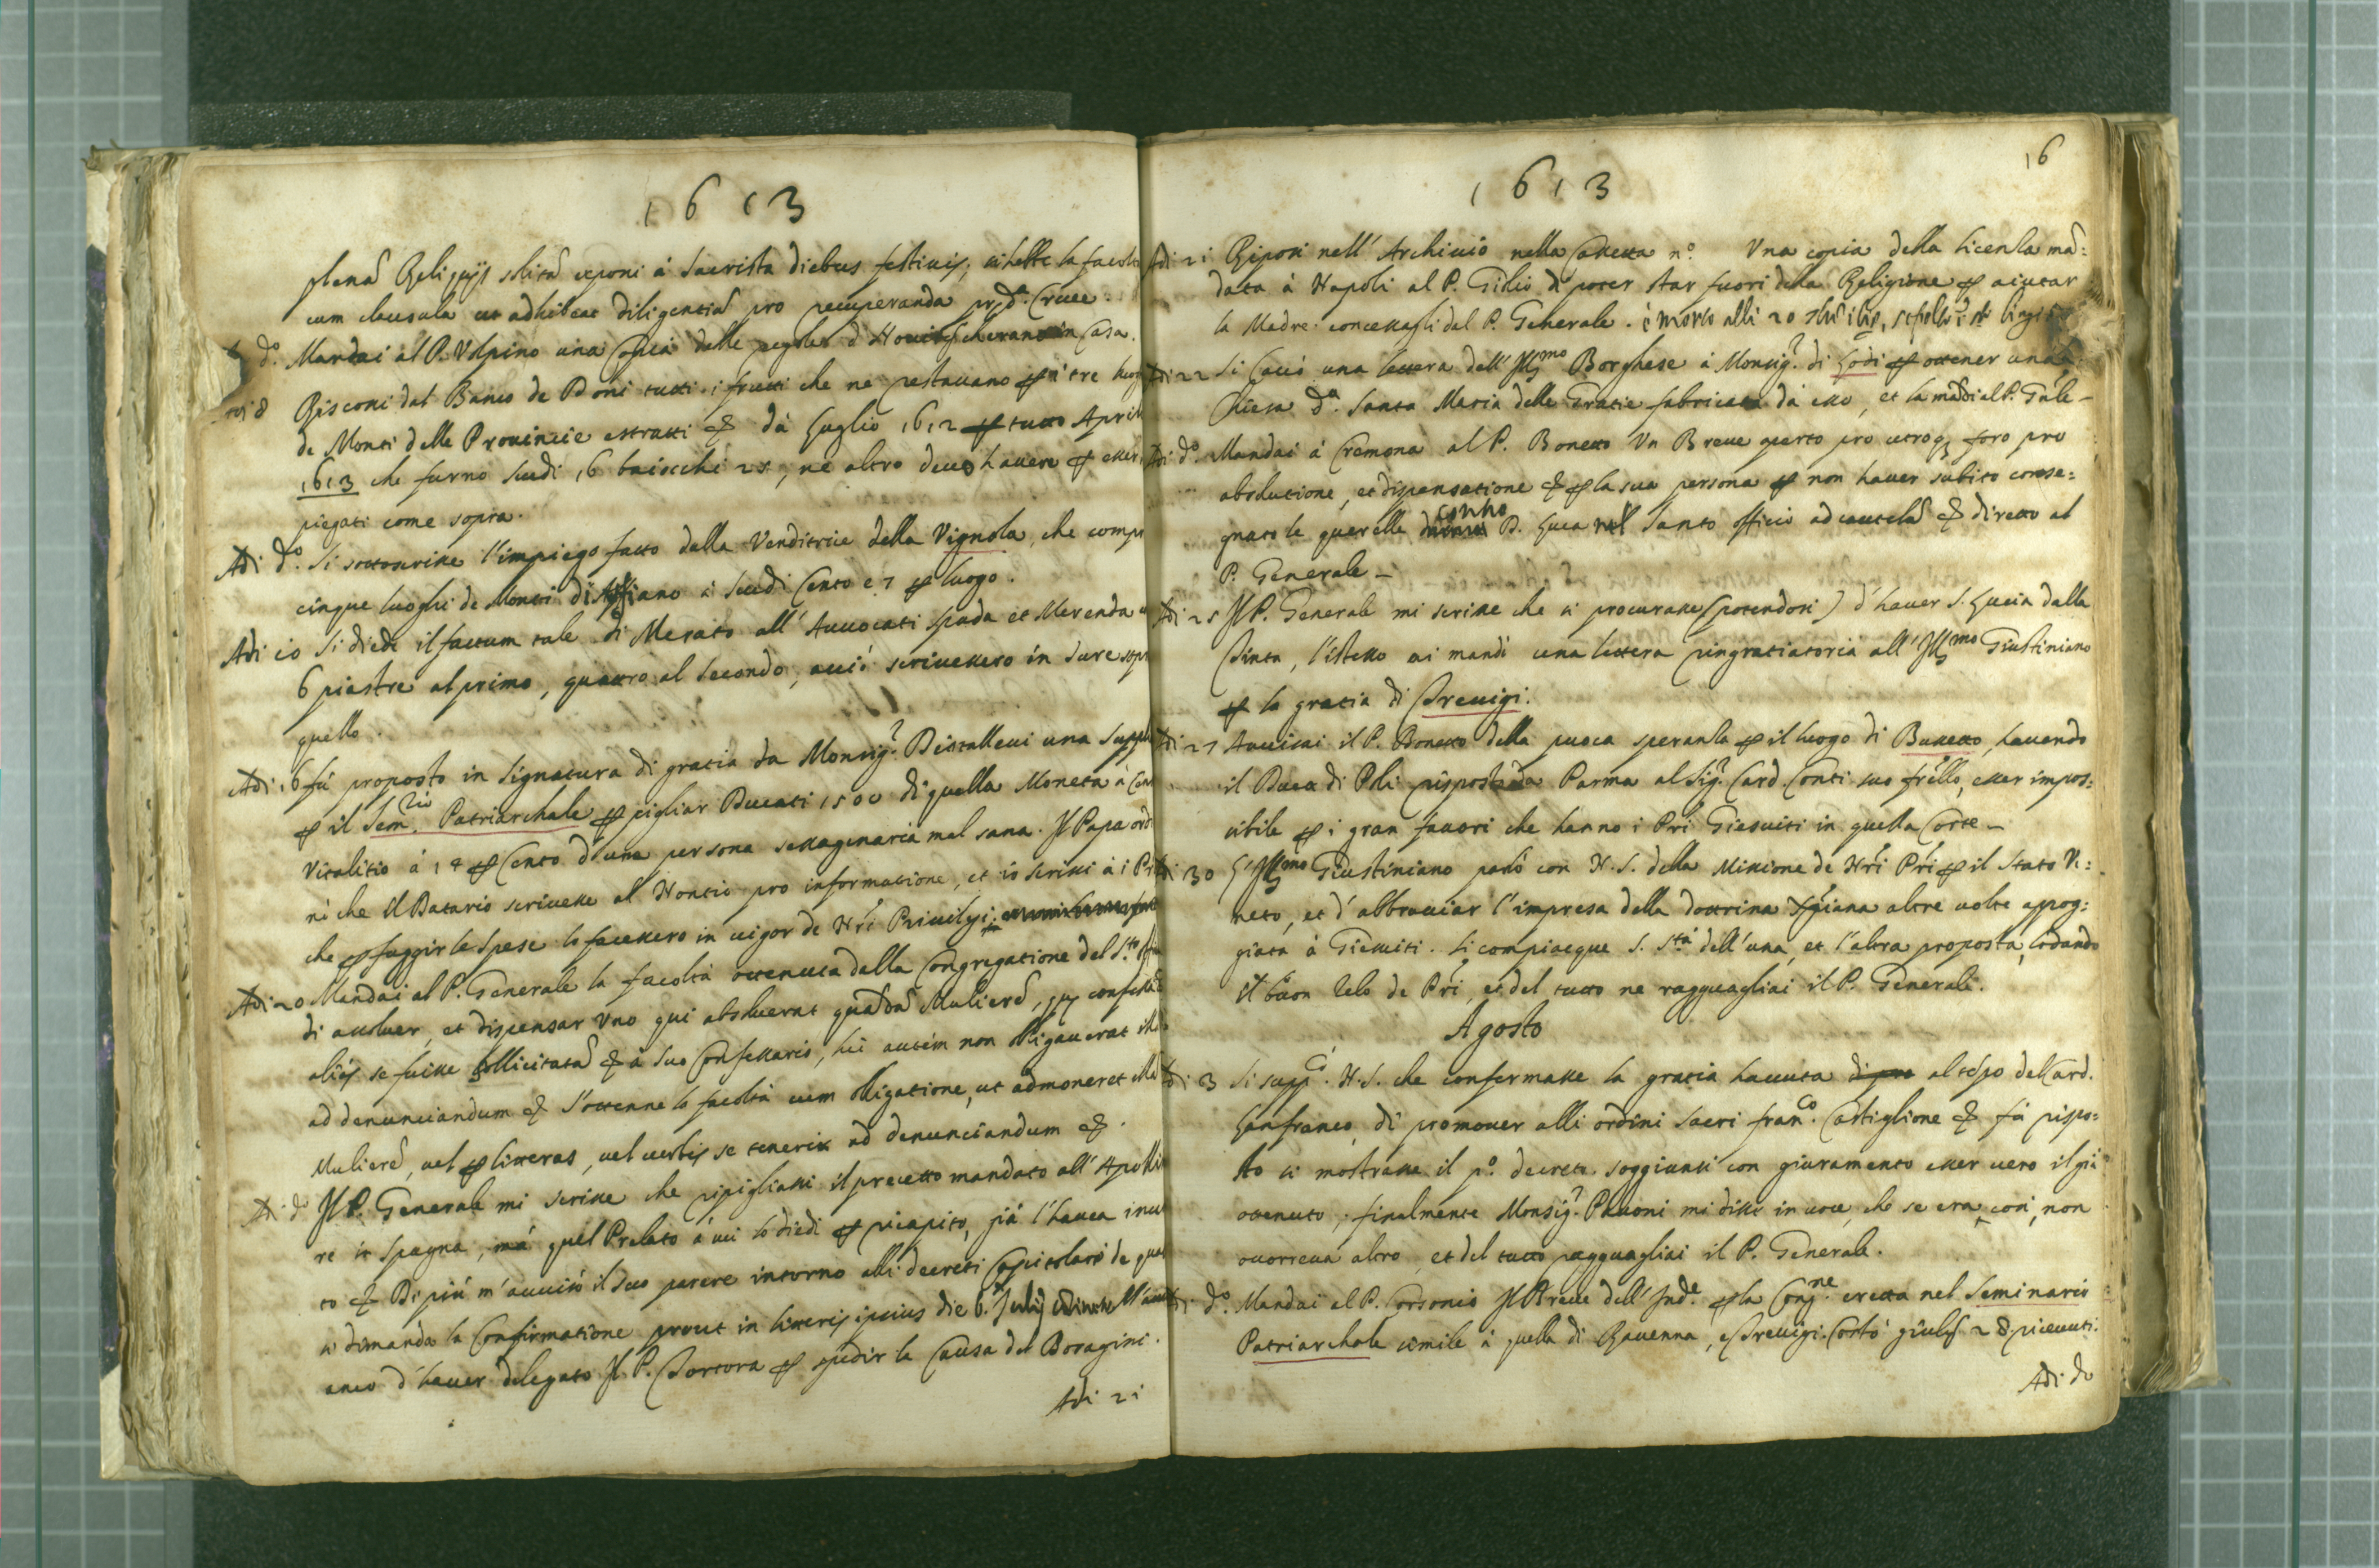 1613
plenã Reliquijs solitã exponi à Sacrista diebus festiuis;
cum clausula ut adhibeat diligentiã pro recuperanda pdᵃ Cruce.
dº. Mandai al P. Volpino una Copia delle regole d in Casa.
adi 8 Riscossi dal Banco de Doni tutti i frutti che ne restauano ꝑ i tre luog
de Monti delle Prouincie estratti & dà luglio 1612 ꝑ tutto April
1613 che furno scudi 16 baiocchi 25, ne altro deuo hauere ꝑ esser
piegati come sopra.
Adi dº. si sottoscrisse l'impiego fatto dalla Venditrice della Vignola, che comprò
cinque luoghi de Monti di a scudi Cento e 7 ꝑ luogo.
Adi 10 Si diede il factum tale di Merato all' Auuocati Spada et Merenda
6 piastre al primo, quattro al secondo, acciò scriuessero in iure sopr
quello.
Adi 16 fù proposto in Signatura di gratia da Monsigʳ. una suppl
ꝑ il Semʳⁱᵒ. Patriarchale ꝑ pigliar Ducati 1500 di quella Moneta à
Vitalitio à 14 ꝑ Cento d'una persona sessagenaria mal sana. Il Papa ord
nò che il Datario scriuesse al Nontio pro informatione, et io scrissi à i
che ꝑ fuggir le spese lo facessero in uigor de Nri Priuilegi;
Adi 20 Mandai al P. Generale la facoltà ottenuta dalla Congregatione del Sᵗᵒ
di assoluer, et dispensar uno qui absoluerat quãdã Mulierẽ, que confess
aliàs se fuisse sollicitatã & à suo Confessario, hic autem non obligauerat
ad denunciandum & S'ottenne la facoltà cum obligatione, ut admoneret
Mulierẽ, uel ꝑ litteras, uel uerbis se teneri ad denunciandum &.
Adi dº Il P. Generale mi scrisse che ripigliassi il precetto mandato all'
re in Spagna, mà quel Prelato à cui lo diedi ꝑ ricapito, già l'hauea inui
to & Di più m'auuisò il suo parere intorno alli decreti Capitolari de
si dimanda la Confirmatione prout in litteris ipsius die 6. Julij
anco d'hauer delegato Il P. Tortora ꝑ spedir la Causa del Boragini.
Adi 21
16
1613
Adi 21 Riposi nell'Archiuio nella Cassetta nº Vna copia della licenza mã:
data à Napoli al P. Gilio di poter star fuori della Religione ꝑ aiutar
la Madre. concessagli dal P. Generale. è morto alli 20
Adi 22 Si Cauò una lettera dell'Illᵐᵒ Borghese à Monsigʳ. di Lodi ꝑ ottener una
Chiesa dᵃ. Santa Maria delle Gratie fabricata da esso, et la mãdai al P. Gñle-
Adi dº. Mandai à Cremona al P. Bonetto Vn Breue aperto pro utroqꝫ foro pro
absolutione, et dispensatione & ꝑ la sua persona ꝑ non hauer subito conse:
gnato le querelle contro D. Luca nel Santo officio ad cautelã & diretto al
P. Generale-
Adi 25 Il P. Generale mi scrisse che si procurasse (potendosi) d'hauer S. Lucia dalla
Tinta, l'istesso mi mandò una lettera ringratiatoria all'Illᵐᵒ Giustiniano
ꝑ la gratia di Treuigi.
Adi 27 Auuisai il P. Bonetto della puoca speranza ꝑ il luogo di Busseto, hauendo
il Duca di Poli risposto da Parma al Sigʳ. Card. Conti suo frello, esser impos:
sibile ꝑ i gran fauori che hanno i Pri Giesuiti in quella Corte-
Adi 30 L'Illᵐᵒ Giustiniano parlò con N. S. della Missione de Nri Pri ꝑ il Stato Ve:
neto, et d'abbracciar l'impresa della dottrina Xpiana altre uolte apog:
giata à Giesuiti. Si compiacque S. Sᵗᵃ dell'una, et l'altra proposta, lodando
il buon zelo de Pri, et del tutto ne ragguagliai il P. Generale.
Agosto
Adi 3 Si suppᶜᵒ. N. S. che confermasse la gratia hauuta al tẽpo del Card.
Lanfranco, di promouer alli ordini sacri Franᶜᵒ. Castiglione & fù rispo:
sto si mostrasse il pº. decreto. soggiunsi con giuramento esser uero il già
ottenuto; finalmente Monsigʳ. Pauoni mi disse in uoce, che se era così, non
occorreua altro, et del tutto ragguagliai il P. Generale.
Adi dº. Mandai al P. Corsonio Il Breue dell'Indᵉ. ꝑ la Congⁿᵉ. eretta nel Seminario
Patriarchale simile à quella di Rauenna, e Treuigi. Costò giulij 28 riceuuti.
Adi dº